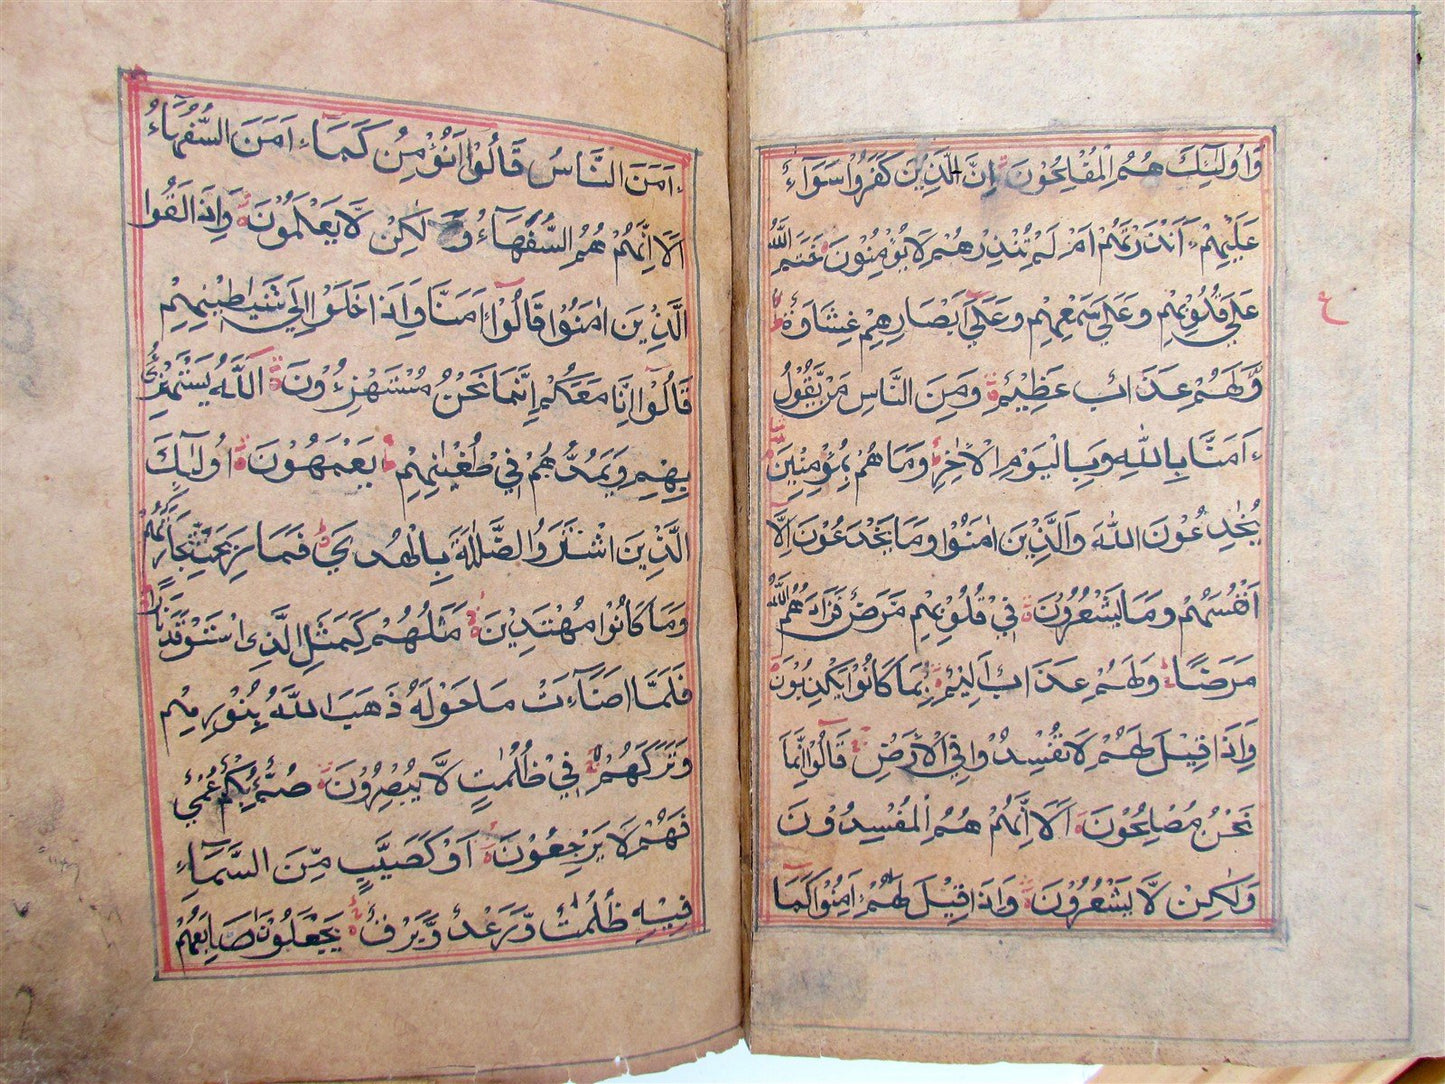 وَاُولٰٓئِكَ هُمُ الْمُفْلِحُوْنَ اِنَّ الَّذِيْنَ كَفَرُوْا سَوَآءٌ
عَلَيْهِمْ ءَاَنْذَرْتَهُمْ اَمْ لَمْ تُنْذِرْهُمْ لَا يُؤْمِنُوْنَ خَتَمَ اللّٰهُ
عَلٰى قُلُوْبِهِمْ وَعَلٰى سَمْعِهِمْ وَعَلٰٓى اَبْصَارِهِمْ غِشَاوَةٌ
وَّلَهُمْ عَذَابٌ عَظِيْمٌ وَمِنَ النَّاسِ مَنْ يَّقُوْلُ
ءَامَنَّا بِاللّٰهِ وَبِالْيَوْمِ الْاٰخِرِ وَمَا هُمْ بِمُؤْمِنِيْنَ
يُخٰدِعُوْنَ اللّٰهَ وَالَّذِيْنَ اٰمَنُوْا وَمَا يَخْدَعُوْنَ اِلَّا
اَنْفُسَهُمْ وَمَا يَشْعُرُوْنَ فِيْ قُلُوْبِهِمْ مَرَضٌ فَزَادَهُمُ اللّٰهُ
مَرَضًا وَلَهُمْ عَذَابٌ اَلِيْمٌ بِمَا كَانُوْا يَكْذِبُوْنَ
وَاِذَا قِيْلَ لَهُمْ لَا تُفْسِدُوْا فِي الْاَرْضِ قَالُوْٓا اِنَّمَا
نَحْنُ مُصْلِحُوْنَ اَلَآ اِنَّهُمْ هُمُ الْمُفْسِدُوْنَ
وَلٰكِنْ لَّا يَشْعُرُوْنَ وَاِذَا قِيْلَ لَهُمْ اٰمِنُوْا كَمَآ
ءَامَنَ النَّاسُ قَالُوْٓا اَنُؤْمِنُ كَمَآ ءَامَنَ السُّفَهَآءُ
اَلَآ اِنَّهُمْ هُمُ السُّفَهَآءُ وَلٰكِنْ لَّا يَعْلَمُوْنَ وَاِذَا لَقُوا
الَّذِيْنَ اٰمَنُوْا قَالُوْٓا اٰمَنَّا وَاِذَا خَلَوْا اِلٰى شَيٰطِيْنِهِمْ
قَالُوْٓا اِنَّا مَعَكُمْ اِنَّمَا نَحْنُ مُسْتَهْزِءُوْنَ اَللّٰهُ يَسْتَهْزِئُ
بِهِمْ وَيَمُدُّهُمْ فِيْ طُغْيٰنِهِمْ يَعْمَهُوْنَ اُولٰٓئِكَ
الَّذِيْنَ اشْتَرَوُا الضَّلٰلَةَ بِالْهُدٰى فَمَا رَبِحَتْ تِّجَارَتُهُمْ
وَمَا كَانُوْا مُهْتَدِيْنَ مَثَلُهُمْ كَمَثَلِ الَّذِى اسْتَوْقَدَ نَارًا
فَلَمَّا اَضَآءَتْ مَاحَوْلَهٗ ذَهَبَ اللّٰهُ بِنُوْرِهِمْ
وَتَرَكَهُمْ فِيْ ظُلُمٰتٍ لَّا يُبْصِرُوْنَ صُمٌّ بُكْمٌ عُمْيٌ
فَهُمْ لَا يَرْجِعُوْنَ اَوْ كَصَيِّبٍ مِّنَ السَّمَآءِ
فِيْهِ ظُلُمٰتٌ وَّرَعْدٌ وَّبَرْقٌ يَجْعَلُوْنَ اَصَابِعَهُمْ